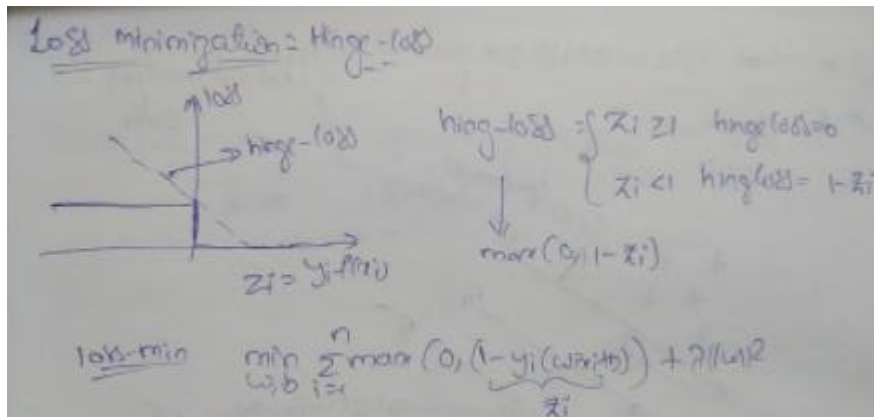 Loss minimization = Hinge-loss
loss
hinge-loss
zi = yi f(xi)
hing-loss = { zi ≥ 1 hingeloss=0
{ zi < 1 hingloss = 1-zi
max(0, 1-zi)
loss-min min w,b n Σ i=1 max (0, (1-yi(wᵀxi+b)) + λ||w||2
zi